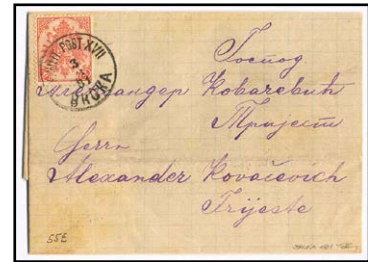 MIL. POST XVII
BRČKA
Господ
Александер Ковачевић
Тријест
Herrn
Alexander Kovačevich
Trijeste
55E